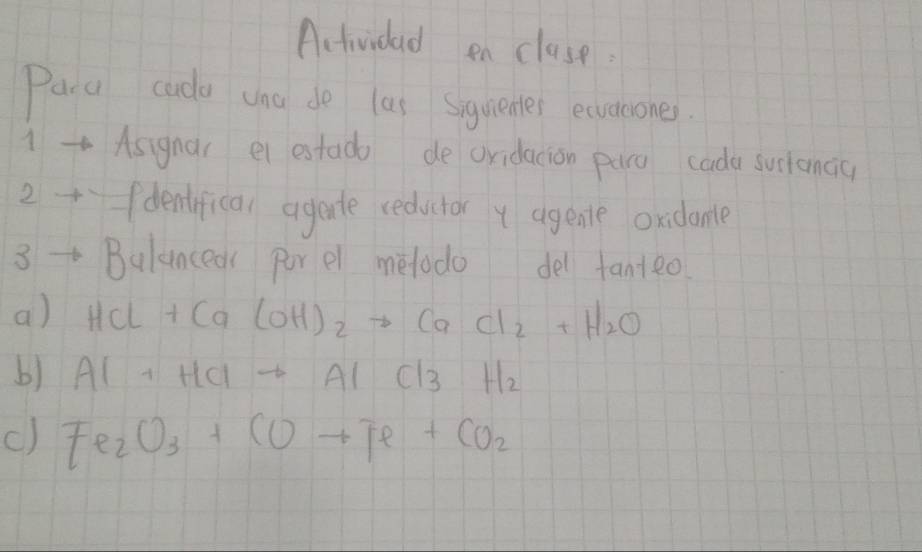 Actividad en clase.
Para cada una de las siguientes ecuaciones.
1 → Asignar el estado de oxidación para cada sustancia
2 → Identificar agente reductor y agente oxidante
3 → Balancear por el método del tanteo.
a) HCl + Ca (OH)₂ → Ca Cl₂ + H₂O
b) Al + HCl → Al Cl3 H₂
c) Fe₂O₃ + CO → Fe + CO₂